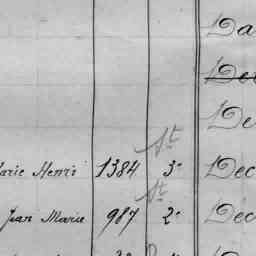 Da
De
St
arie Henri 1384 3e Dec
St
Jean Marie 987 2e Dec